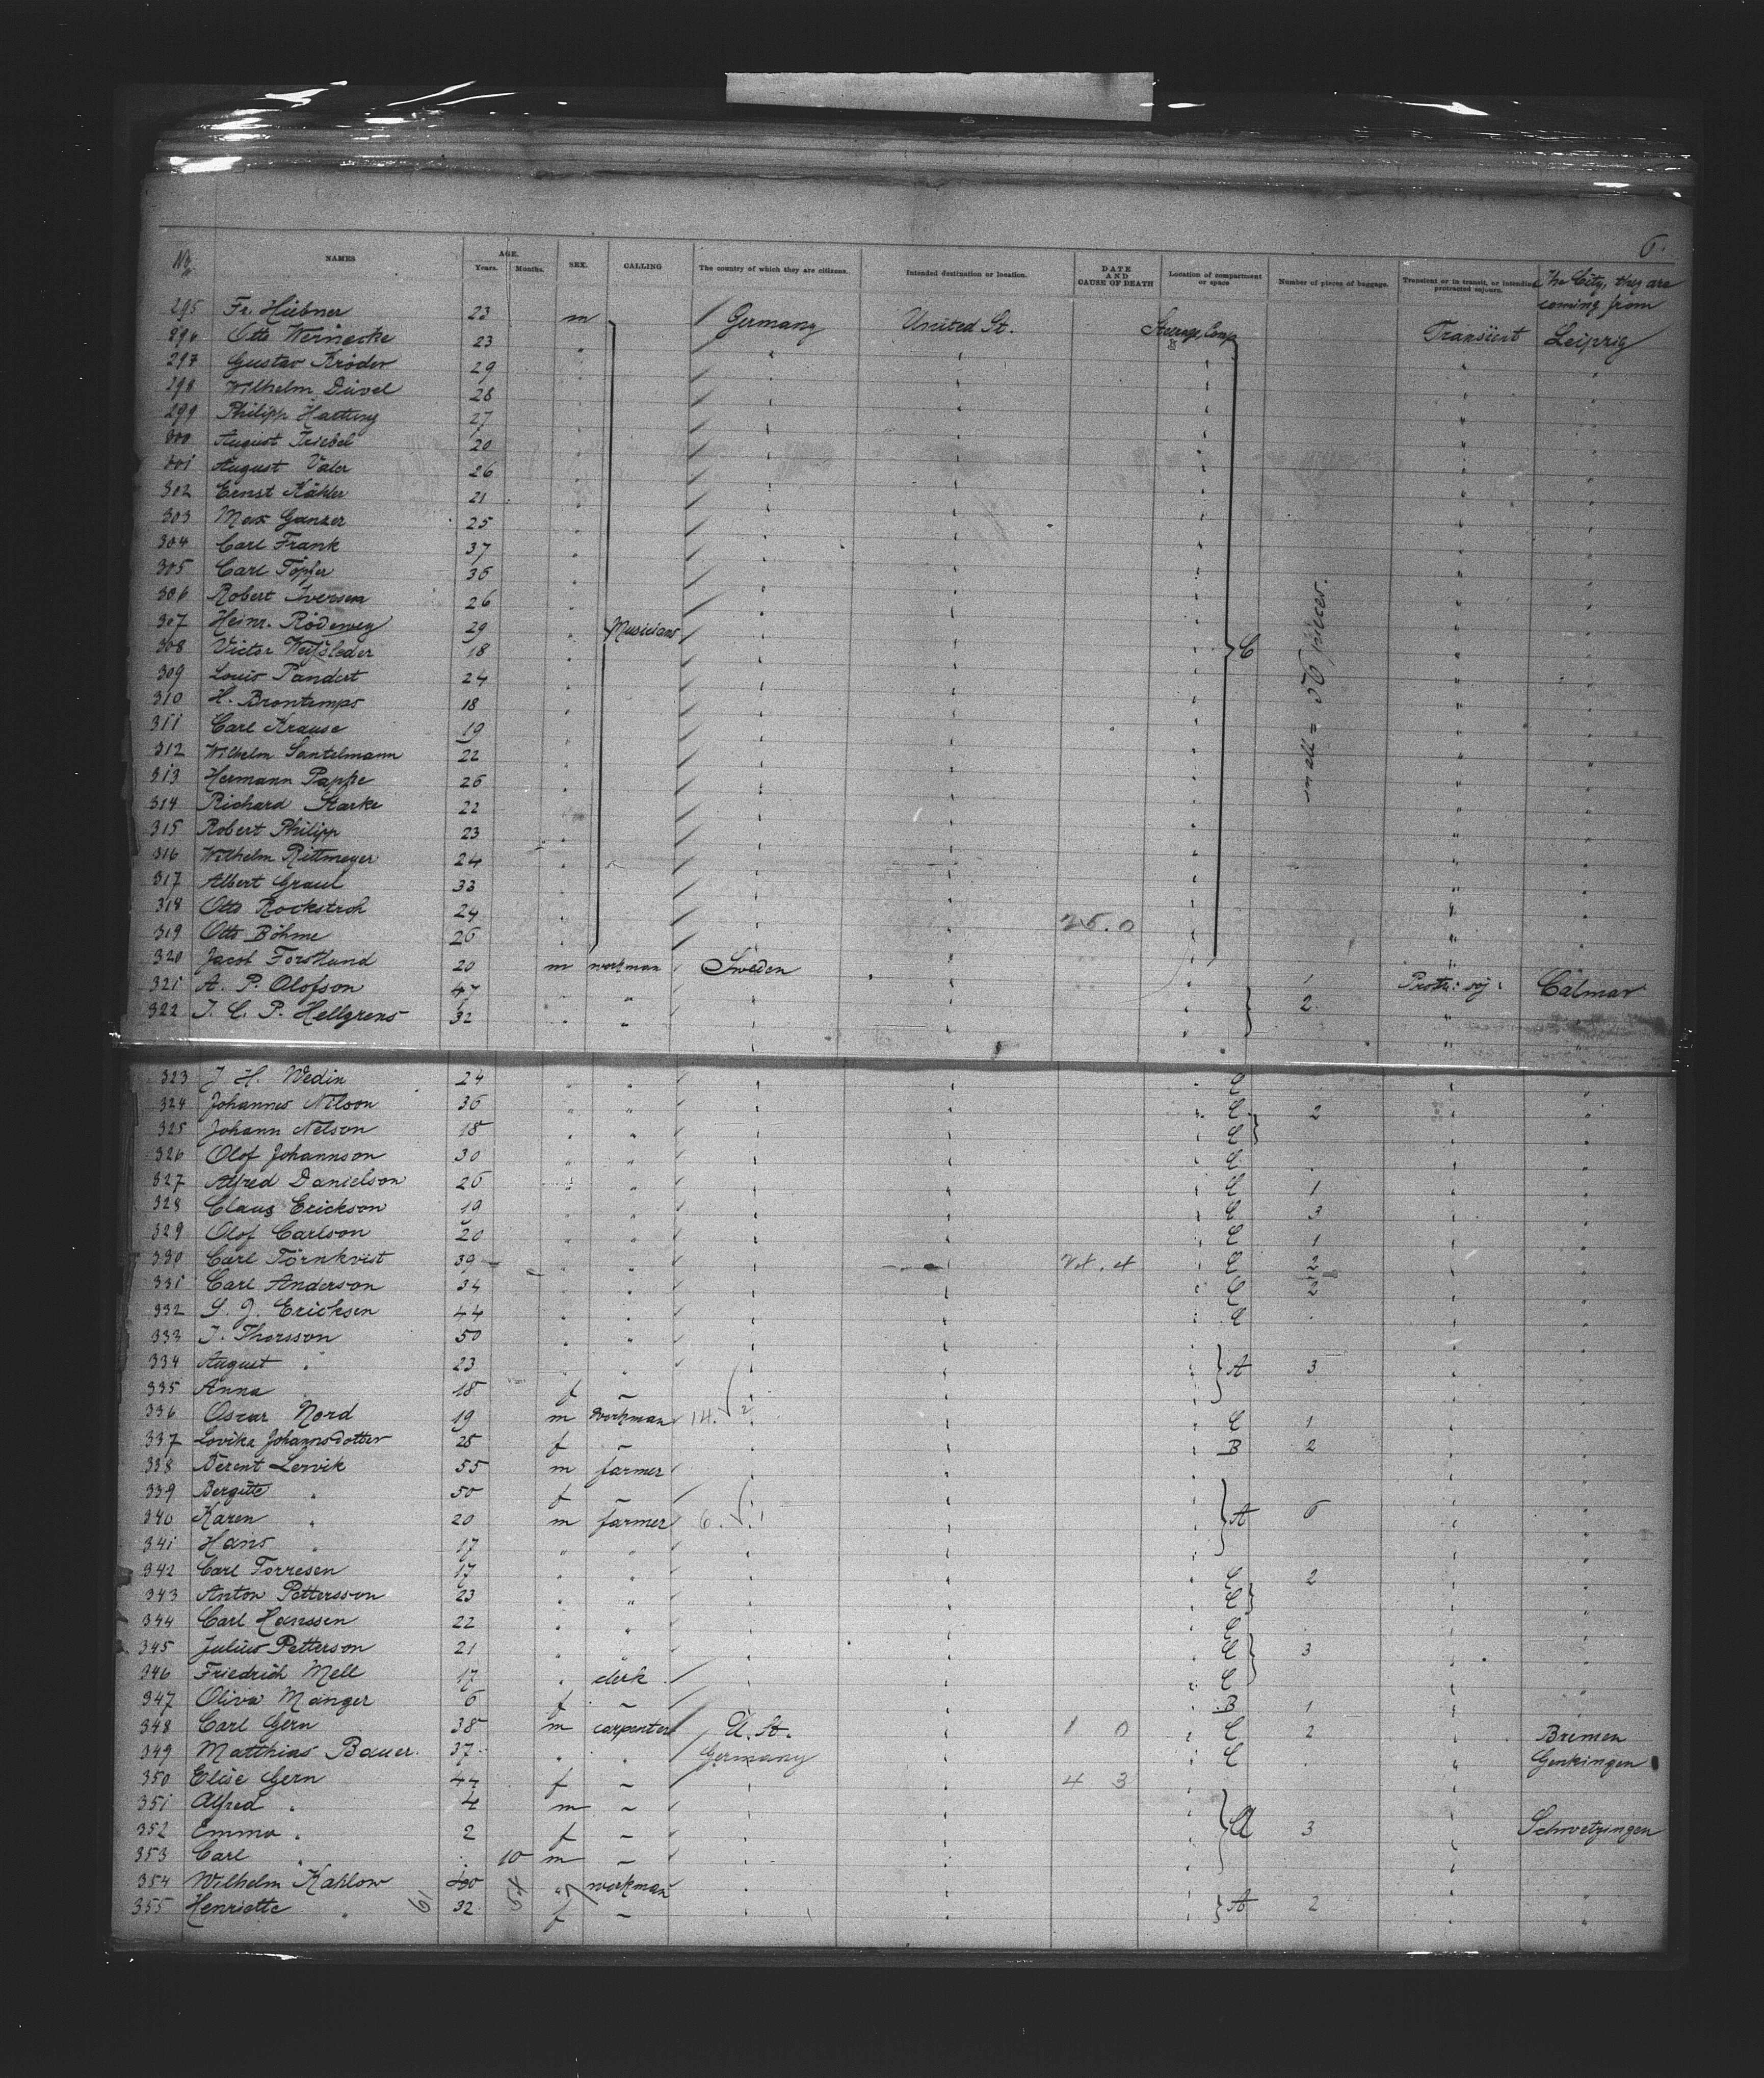 6.
No. NAMES AGE. Years. Months. SEX. CALLING The country of which they are citizens. Intended destination or location. DATE AND CAUSE OF DEATH Location of compartment or space Number of pieces of baggage. Transient or in transit, or intending protracted sojourn. The City, they are coming from
295 Fr. Hübner 23 m Germany United St. Steerage, Comp Transient Leipzig
296 Otto Wernecke 23 " " " " " "
297 Gustav Kröder 29 " " " " " "
298 Wilhelm Düvel 28 " " " " " "
299 Philipp Hartung 27 " " " " " "
300 August Triebel 20 " " " " " "
301 August Valer 26 " " " " " "
302 Ernst Kähler 21 " " " " " "
303 Max Ganzer 25 " " " " " "
304 Carl Frank 37 " " " " " "
305 Carl Töpfer 36 " " " " " "
306 Robert Iversen 26 " " " " " "
307 Heinr. Rödeweg 29 " Musicians " " " " "
308 Victor Weißleder 18 " " " " C small = 50 pieces. " "
309 Louis Pandert 24 " " " " " "
310 H. Brontemps 18 " " " " " "
311 Carl Krause 19 " " " " " "
312 Wilhelm Santelmann 22 " " " " " "
313 Hermann Pappe 26 " " " " " "
314 Richard Starke 22 " " " " " "
315 Robert Philipp 23 " " " " " "
316 Wilhelm Rittmeyer 24 " " " " " "
317 Albert Graul 33 " " " " " "
318 Otto Rockstroh 24 " " " 25.0 " " "
319 Otto Böhme 26 " " " " " "
320 Jacob Forstlund 20 m workman Sweden " " 1 Protr: soj: Calmar
321 A. P. Olofson 47 " " " " " 2 " "
322 J. C. P. Hellgrens 32 " " " " " " "
323 J. H. Wedin 24 " " " " " C " "
324 Johannes Nilson 36 " " " " " C 2 " "
325 Johann Nelson 18 " " " " " C " "
326 Olof Johannson 30 " " " " " C " "
327 Alfred Danielson 26 " " " " " C 1 " "
328 Claus Erickson 19 " " " " " C 3 " "
329 Olof Carlson 20 " " " " " C 1 " "
330 Carl Törnkvist 39 " " " " 24.4 " C 2 " "
331 Carl Anderson 34 " " " " " C 2 " "
332 S. J. Ericksen 44 " " " " " C " "
333 J. Thorsson 50 " " " " " " "
334 August " 23 " " " " " A 3 " "
335 Anna " 18 f – " " " " "
336 Oscar Nord 19 m workman 14. 2 " " C 1 " "
337 Lovika Johannsdotter 25 f – " " " B 2 " "
338 Berent Lervik 55 m farmer " " " " "
339 Bergitte " 50 f – " " " " "
340 Karen " 20 m farmer 6. 1 " " A 6 " "
341 Hans " 17 " " " " " " "
342 Carl Torresen 17 " " " " " C 2 " "
343 Anton Pettersson 23 " " " " " C " "
344 Carl Hanssen 22 " " " " " C " "
345 Julius Petterson 21 " " " " " C 3 " "
346 Friedrich Mell 17 " clerk " " " C " "
347 Oliva Manger 6 f – " " " B 1 " "
348 Carl Gern 38 m carpenter U. St. " 1 0 " C 2 " Bremen
349 Matthias Bauer. 37 " " Germany " " C " Genkingen
350 Elise Gern 44 f – " " 4 3 " "
351 Alfred " 4 m – " " " "
352 Emma " 2 f – " " " A 3 " Schwetzingen
353 Carl " 10 m – " " " "
354 Wilhelm Kahlow " workman " " " " "
355 Henriette " 61 32 54 f – " " " A 2 " "